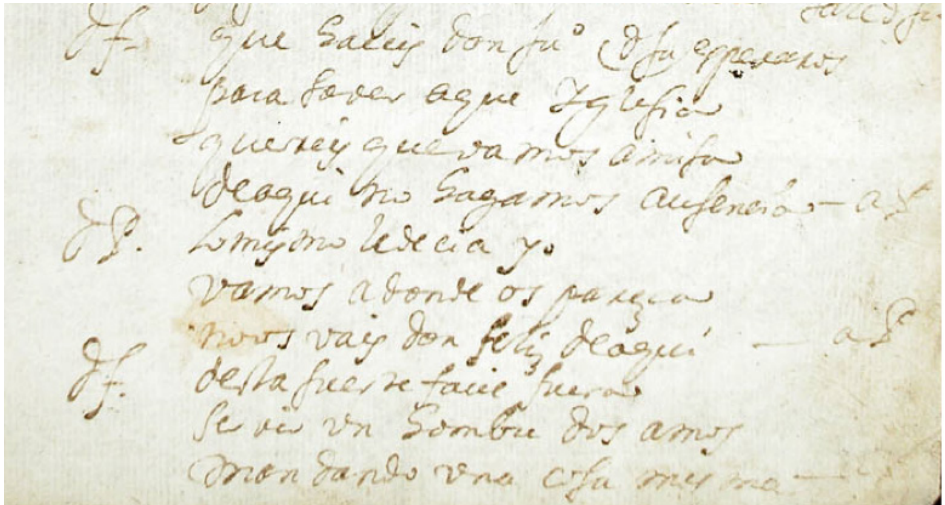 df. que haceis don Ju.º d su esperanos
para saver aque Iglesia
quereis que vamos a misa
deaqui no hagamos ausencia — a P
dP. lo mismo le decia yo
vamos adonde os pareça
no os vais don feliz deaqui — a P
df. desta suerte facil fuera
servir vn hombre dos amos
mandando vna cosa mesma —